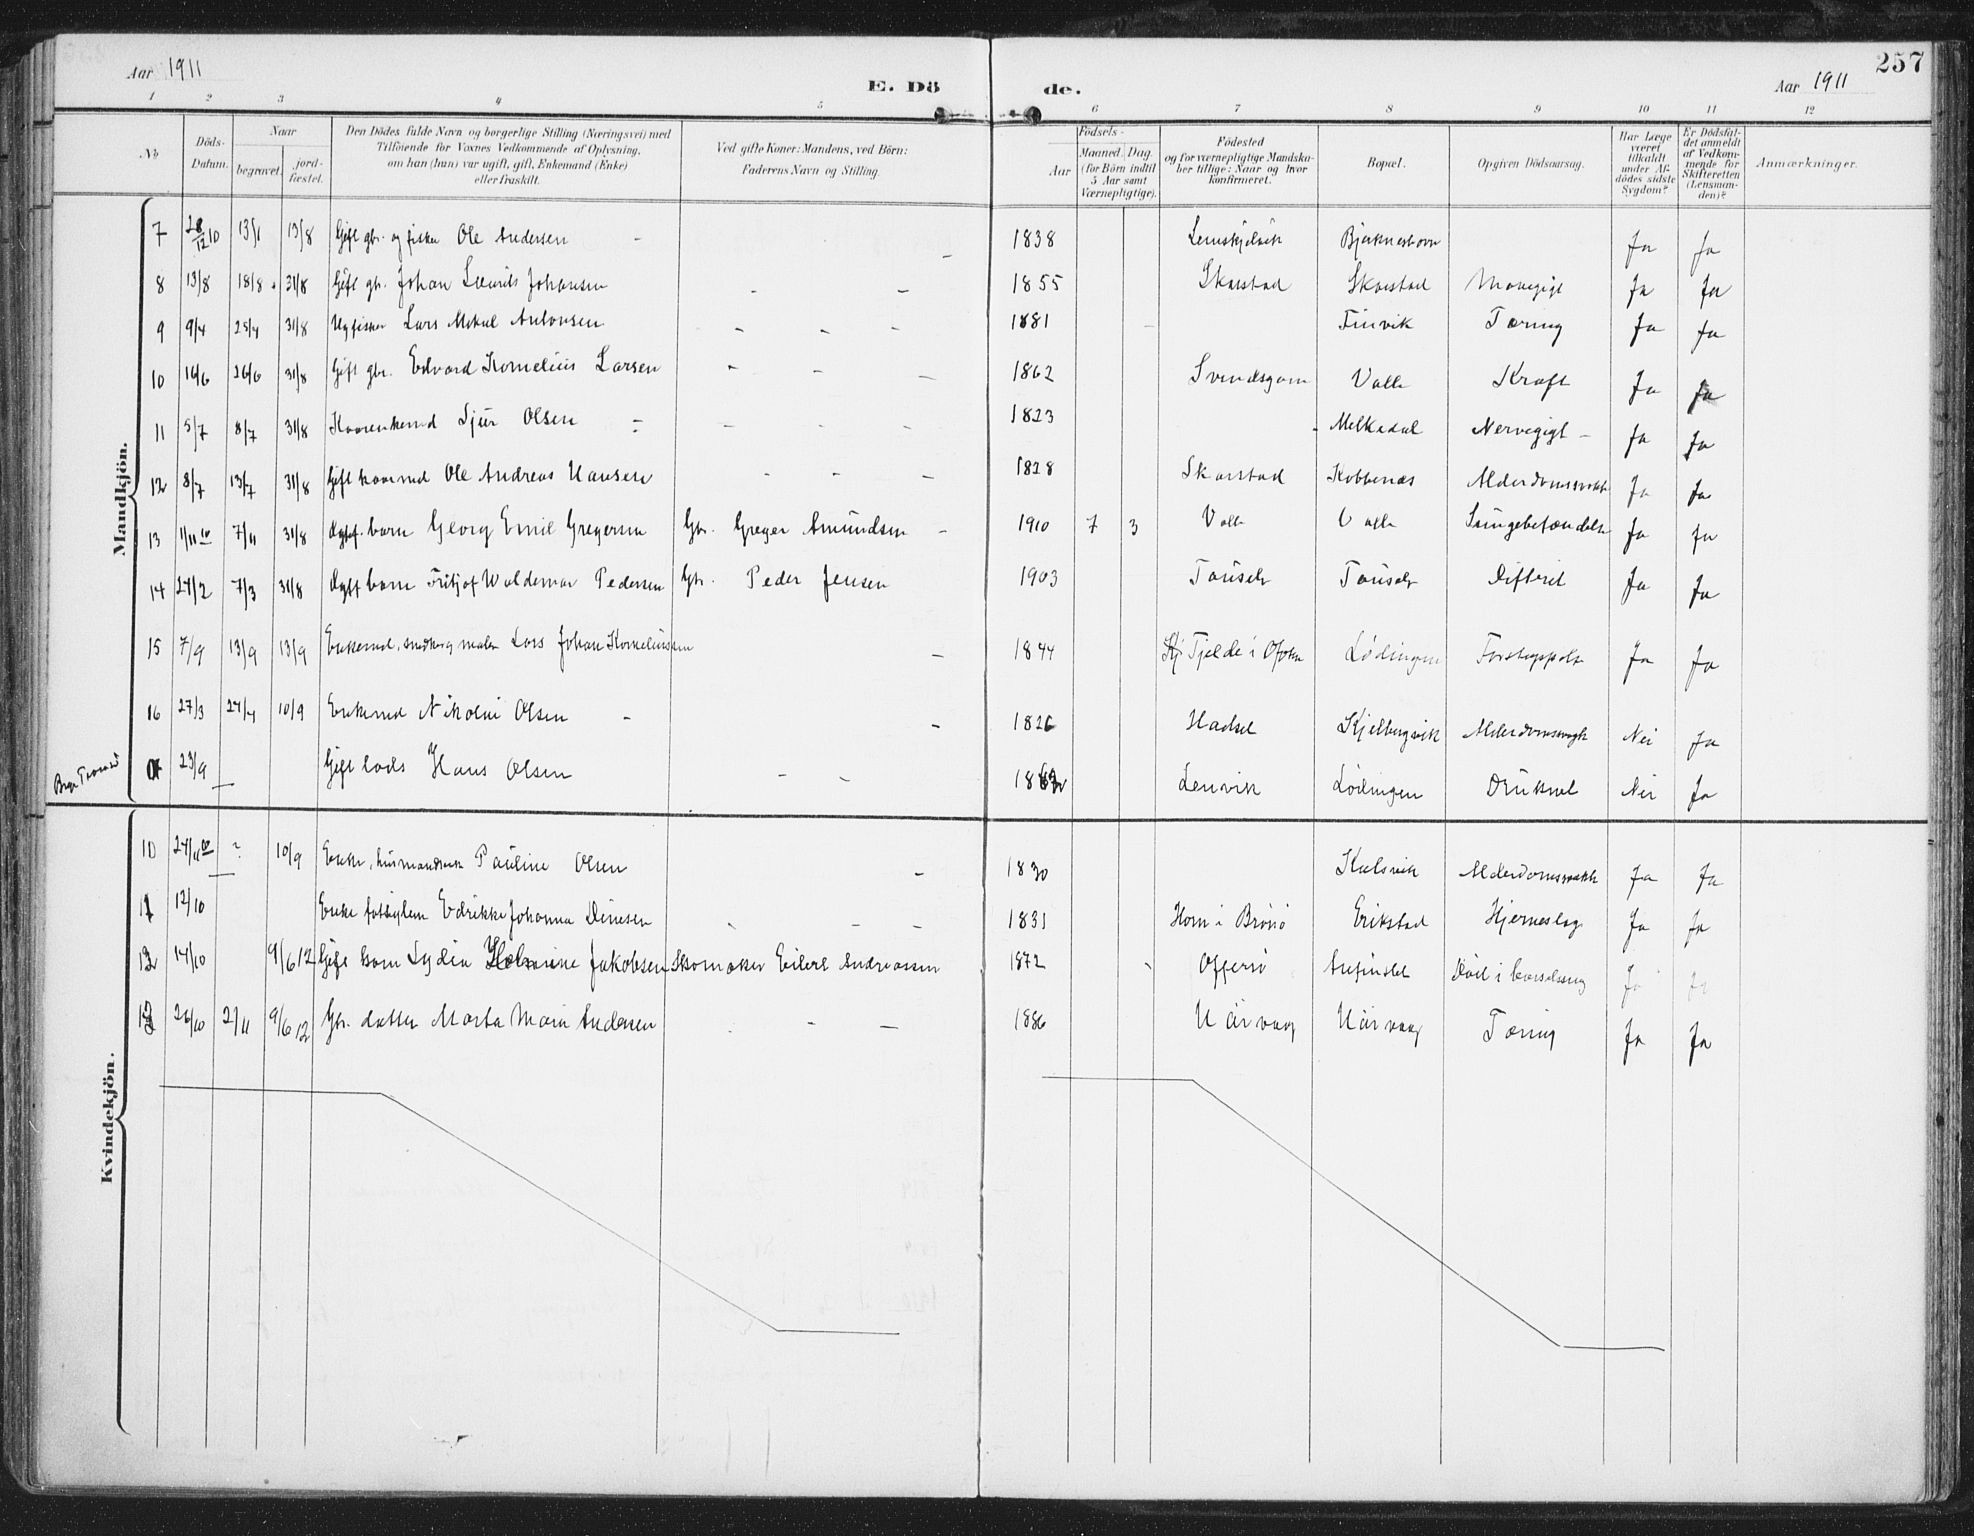 Aar 1911
E. Dö
de.
Aar 1911
257
1 2 3 4 5 6 7 8 9 10 11 12
No
Döds-Datum.
Naar
begravet.
jord-fæstet.
Den Dödes fulde Navn og borgerlige Stilling (Næringsvei) med Tilföiende for Voxnes Vedkommende af Oplysning, om han (hun) var ugift, gift, Enkemand (Enke) eller fraskilt.
Ved gifte Koner: Mandens, ved Börn: Faderens Navn og Stilling.
Födsels-
Aar
Maaned. Dag.
(for Börn indtil 5 Aar samt Værnepligtige).
Födested og for værnepligtige Mandskaber tillige: Naar og hvor konfirmeret.
Bopæl.
Opgiven Dödsaarsag.
Har Læge været tilkaldt under Afdödes sidste Sygdom?
Er Dödsfaldet anmeldt af Vedkommende for Skifteretten (Lensmanden)?
Anmærkninger.
Mandkjön.
7 28/12 10 13/1 13/8 Gift gbr. og fisker Ole Andersen - - 1838 Bjerkneshovn Ja Ja
8 13/8 18/8 31/8 Gift gbr. Johan Johansen - - 1855 Skarstad Skarstad Mavegigt Ja Ja
9 9/4 25/4 31/8 Ug fisker Lars Mikal Antonsen - - - 1881 - Finvik Tæring Ja Ja
10 16/6 26/6 31/8 Gift gbr. Edvard Kornelius Larsen - - - 1862 Valle Kræft Ja Ja
11 5/7 8/7 31/8 Sjur Olsen - - - 1823 Melkedal Nervegigt - Ja Ja
12 8/7 13/7 31/8 Gift Ole Andreas Hansen - - - 1828 Skarstad Kobbenæs Alderdomssvakh Ja Ja
13 1/11 10 7/11 31/8 barn Georg Emil Gregersen Gbr. Greger Amundsen - 1910 7 3 Valle Valle Lungebetændelse Ja Ja
14 27/2 7/3 31/8 barn Fritjof Waldemar Pedersen Gbr. Peder Jensen 1903 Difterit Ja Ja
15 7/9 13/9 13/9 Enkemd. Lars Johan Korneliussen - 1844 Tjelde i Ofoten Lödingen Forstoppelse Ja Ja
16 27/3 24/4 10/9 Enkemd Nikolai Olsen - - 1826 Hadsel Kjelbergvik Alderdomssvagh Nei Ja
23/9 - Gift lods Hans Olsen - - Lenvik Lödingen Druknet Nei Ja
Kvindekjön.
10 ? 10/9 Enke, Pauline Olsen - 1830 Kalsvik Alderdomssvakh Ja Ja
11 12/10 Enke Edrikke Johanna Dinesen - - - 1831 Horn i Brönö Erikstad Hjerneslag Ja Ja
12 14/10 9/6 12 Gift kone Lydia Jakobsen Skomaker Eilert Andreassen 1872 Offersö Död i barselseng Ja Ja
13 26/10 2/11 9/6 12 Gbr. datter Marta Marie Andersen - - 1886 Ulrvaag Ulrvaag Tæring Ja Ja